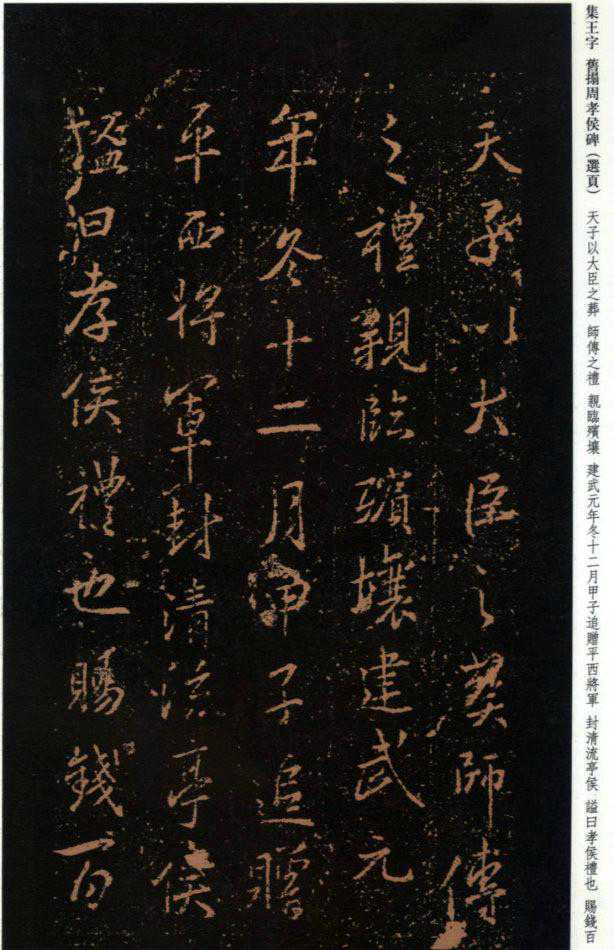 集王字 舊搨周孝侯碑（選頁） 天子以大臣之葬 師傅之禮 親臨殯壤 建武元年冬十二月甲子追贈平西將軍 封清流亭侯 謚曰孝侯禮也 賜錢百
天子以大臣之葬師傅
之禮親臨殯壤建武元
年冬十二月甲子追贈
平西將軍封清流亭侯
謚曰孝侯禮也賜錢百